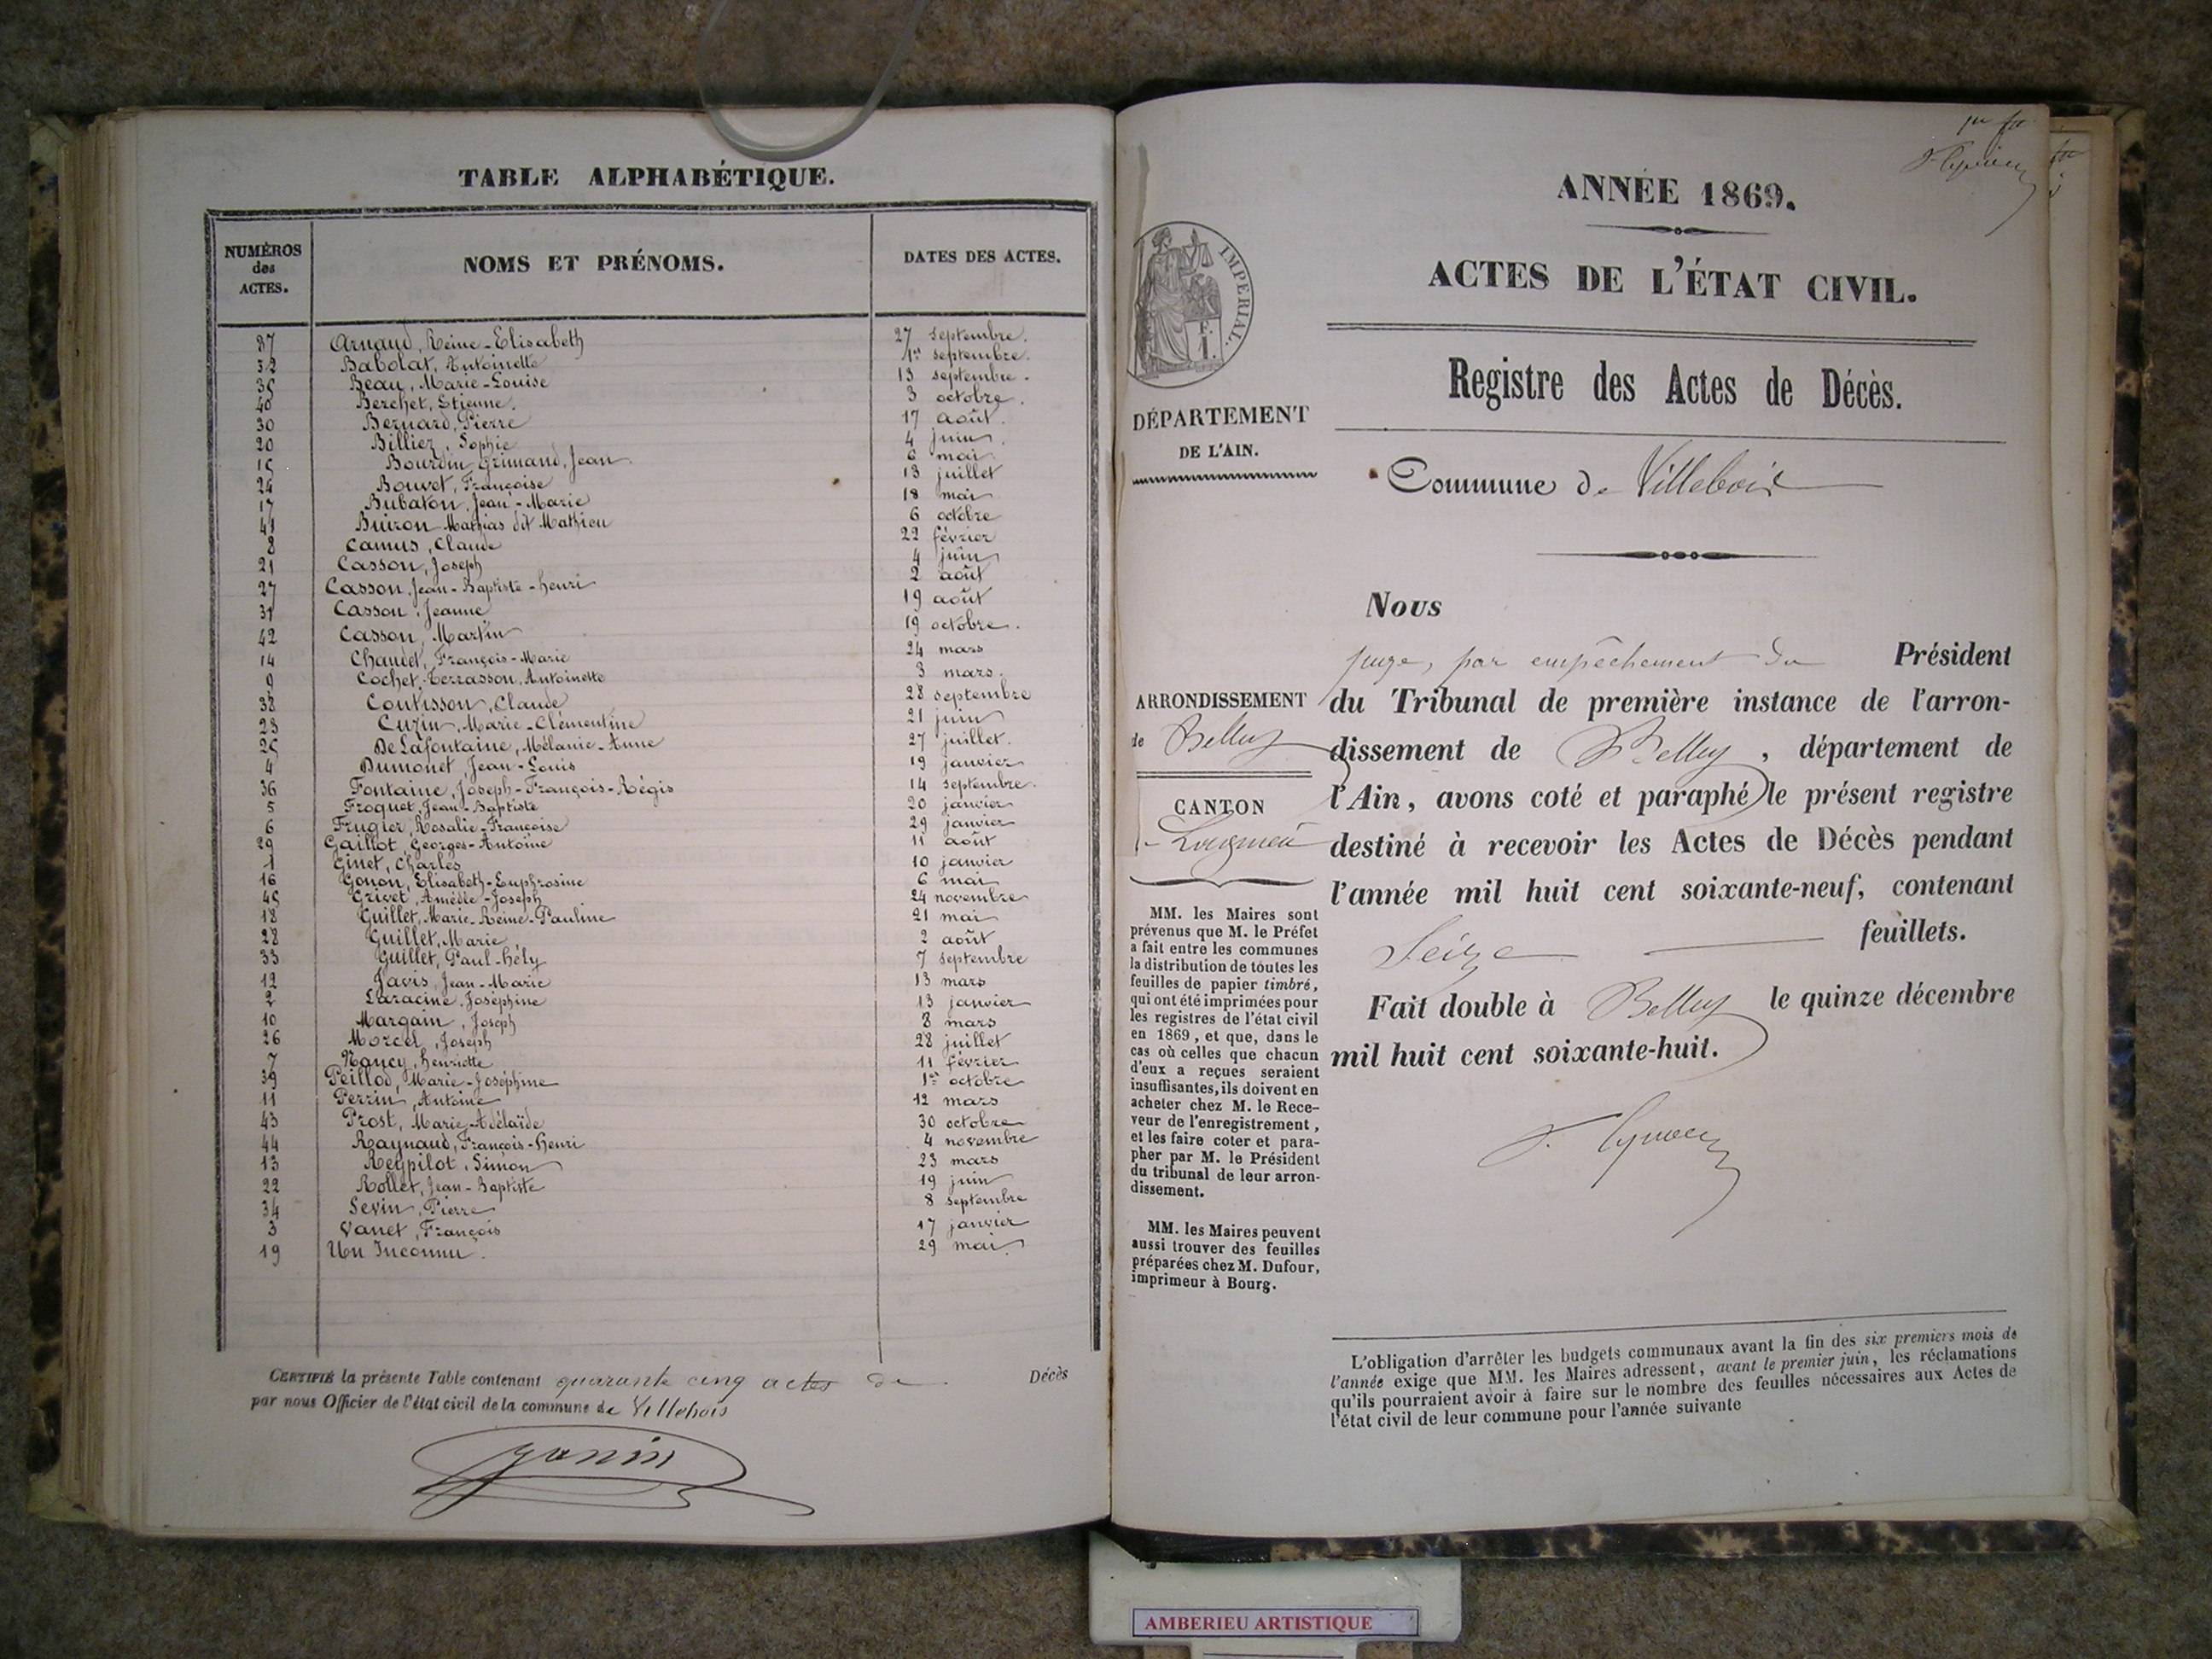 TABLE ALPHABÉTIQUE.
NUMÉROS des ACTES. NOMS ET PRÉNOMS. DATES DES ACTES.
37 Arnaud, Reine-Elisabeth 27 septembre.
32 Babolat, Antoinette 1er septembre.
35 Beau, Marie-Louise 13 septembre.
40 Berchet, Etienne. 3 octobre.
30 Bernard, Pierre 17 août.
20 Billiez, Sophie 4 juin.
15 Bourdin Grimaud, Jean 6 mai.
24 Bouvet, Françoise 13 juillet
17 Bubaton, Jean-Marie 18 mai
41 Buizon Mathias dit Mathieu 6 octobre
8 Camus, Claude 22 février
21 Casson, Joseph 4 juin
27 Casson, Jean-Baptiste-henri 2 août
31 Casson, Jeanne 19 août
42 Casson, Martin 19 octobre.
14 Chaudet, François-Marie 24 mars
9 Cochet-Terrasson, Antoinette 3 mars.
38 Coutisson, Claude 28 septembre
23 Cuzin, Marie-Clémentine 21 juin
25 De Lafontaine, Mélanie-Anne 27 juillet.
4 Dumonet, Jean-Louis 19 janvier
36 Fontaine, Joseph-François-Régis 14 septembre.
5 Froquet, Jean-Baptiste 20 janvier
6 Frugier, Rosalie-Françoise 29 janvier
29 Gaillot, Georges-Antoine 11 août
1 Ginet, Charles 10 janvier
16 Gonon, Elisabeth-Euphrosine 6 mai
45 Grivet, Amédée-Joseph 24 novembre
18 Guillet, Marie-Reine-Pauline 21 mai
28 Guillet, Marie 2 août
33 Guillet, Paul-hély 7 septembre
12 Javis, Jean-Marie 13 mars
2 Laracine, Joséphine 13 janvier
10 Margain, Joseph 8 mars
26 Morcel, Joseph 28 juillet
7 Nancy, henriette 11 février
39 Peillod, Marie-Joséphine 1er octobre
11 Perrin, Antoine 12 mars
43 Prost, Marie-Adélaïde 30 octobre
44 Raynaud, François-henri 4 novembre
13 Reypilot, Simon 23 mars
22 Rollet, Jean-Baptiste 19 juin
34 Sevin, Pierre 8 septembre
3 Vanet, François 17 janvier
19 Un Inconnu. 29 mai.
CERTIFIÉ la présente Table contenant quarante cinq actes de Décès
par nous Officier de l'état civil de la commune de Villebois
Janin
ANNÉE 1869.
ACTES DE L'ÉTAT CIVIL.
Registre des Actes de Décès.
IMPERIAL.
DÉPARTEMENT
DE L'AIN.
Commune de Villebois
Nous
juge, par empêchement du Président
du Tribunal de première instance de l'arron-
dissement de Belley, département de
l'Ain, avons coté et paraphé le présent registre
destiné à recevoir les Actes de Décès pendant
l'année mil huit cent soixante-neuf, contenant
Seize feuillets.
Fait double à Belley le quinze décembre
mil huit cent soixante-huit.
ARRONDISSEMENT
de Belley
CANTON
Lagnieu
MM. les Maires sont
prévenus que M. le Préfet
a fait entre les communes
la distribution de toutes les
feuilles de papier timbré,
qui ont été imprimées pour
les registres de l'état civil
en 1869, et que, dans le
cas où celles que chacun
d'eux a reçues seraient
insuffisantes, ils doivent en
acheter chez M. le Rece-
veur de l'enregistrement,
et les faire coter et para-
pher par M. le Président
du tribunal de leur arron-
dissement.
MM. les Maires peuvent
aussi trouver des feuilles
préparées chez M. Dufour,
imprimeur à Bourg.
L'obligation d'arrêter les budgets communaux avant la fin des six premiers mois de
l'année exige que MM. les Maires adressent, avant le premier juin, les réclamations
qu'ils pourraient avoir à faire sur le nombre des feuilles nécessaires aux Actes de
l'état civil de leur commune pour l'année suivante
AMBERIEU ARTISTIQUE